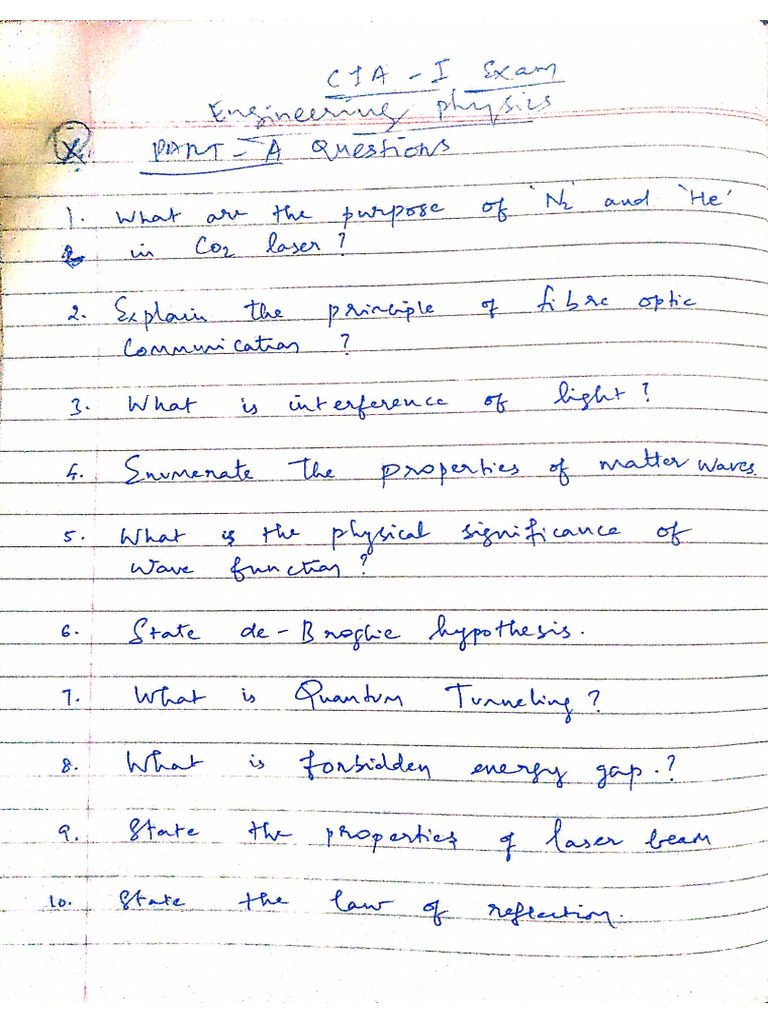 CIA - I Exam
Engineering physics
PART - A Questions
1. What are the purpose of 'N2' and 'He'
in CO2 laser?
2. Explain the principle of fibre optic
Communication?
3. What is interference of light?
4. Enumerate the properties of matter waves.
5. What is the physical significance of
wave function?
6. State de-Broglie hypothesis.
7. What is Quantum Tunneling?
8. What is forbidden energy gap.?
9. State the properties of laser beam
10. State the law of reflection.